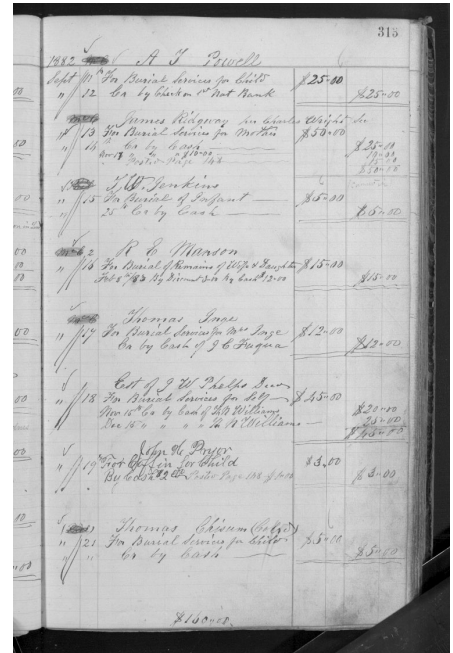 315
1882 A J Powell
Sept 11th For Burial Services for Child $25.00
" 12 Ca by Check on 1st Nat Bank $25-00
James Ridgway for Charles Wright
" 13 For Burial Services for $50-00
" 14 Ca by Cash $25-00
$10-00
Page 148
$50-00
T. W. Jenkins
" 15 For Burial of Infant $5-00
" 25th Ca by Cash $5-00
R E Manson
" 16 For Burial of Remains of Wife & Daughter $15-00
Feb 8th / 83 By Cash $12.00 $15-00
Thomas Inge
" 17 For Burial Services for Mrs Inge $12-00
Ca by Cash of J C Fuqua $12-00
Est of J W Phelps
" 18 For Burial Services for Self $45-00
Nov 15th Ca by Cash of Williams $20-00
Dec 15 " " " " Williams 25-00
$45-00
John H. Pryor
" 19th For Coffin for Child $3.00
By Cash $2.00 Page 148 $3-00
Thomas Chisum (Col'd)
" 21 For Burial Services for Child $5-00
" " Ca by Cash $5-00
$160-00